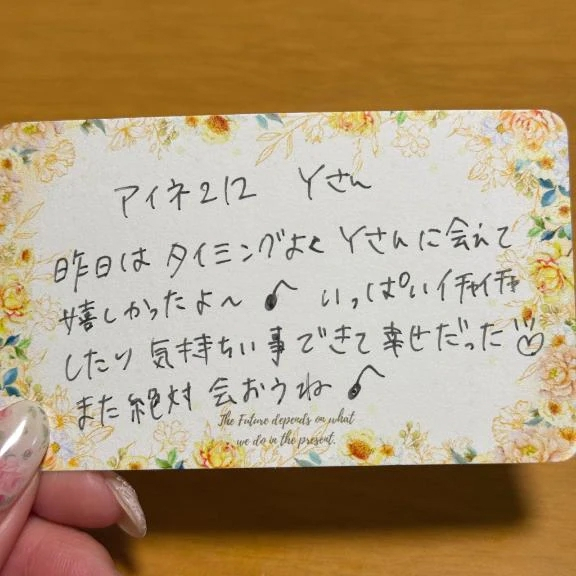 アイネ212 Yさん
昨日は タイミングよく Yさんに会えて
嬉しかったよ〜♪ いっぱいイチャイチャ
したり 気持ちい事できて幸せだった♡
また絶対 会おうね♪
The Future depends on what
we do in the present.